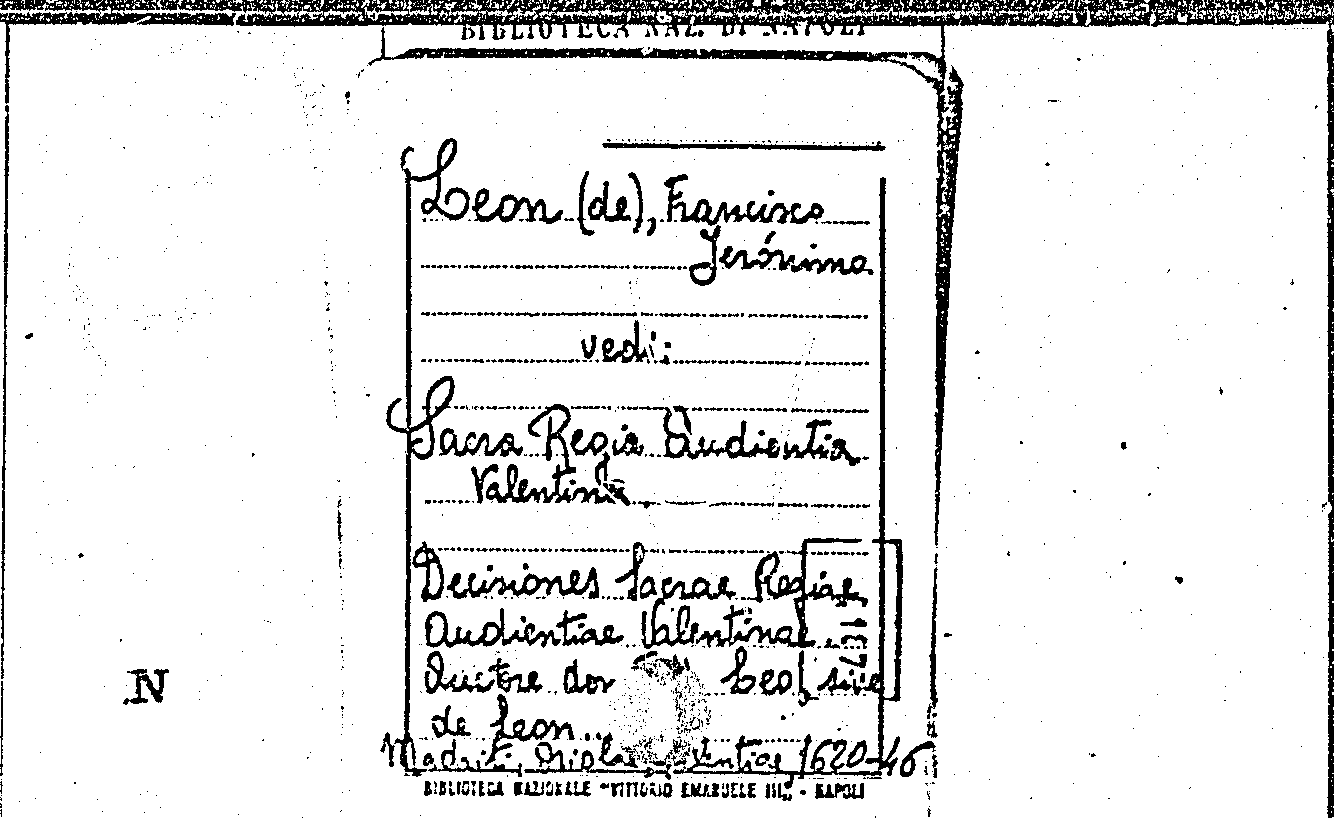 BIBLIOTECA NAZ. DI NAPOLI
Leon (de), Francisco
Jerónimo
vedi:
Sacra Regia Audientia
Valentina.
Decisiones Sacrae Regiae
Audientiae Valentinae.
Auctore don Leo, sive
de Leon...
Madriti, 1620-46
BIBLIOTECA NAZIONALE "VITTORIO EMANUELE III" - NAPOLI
N